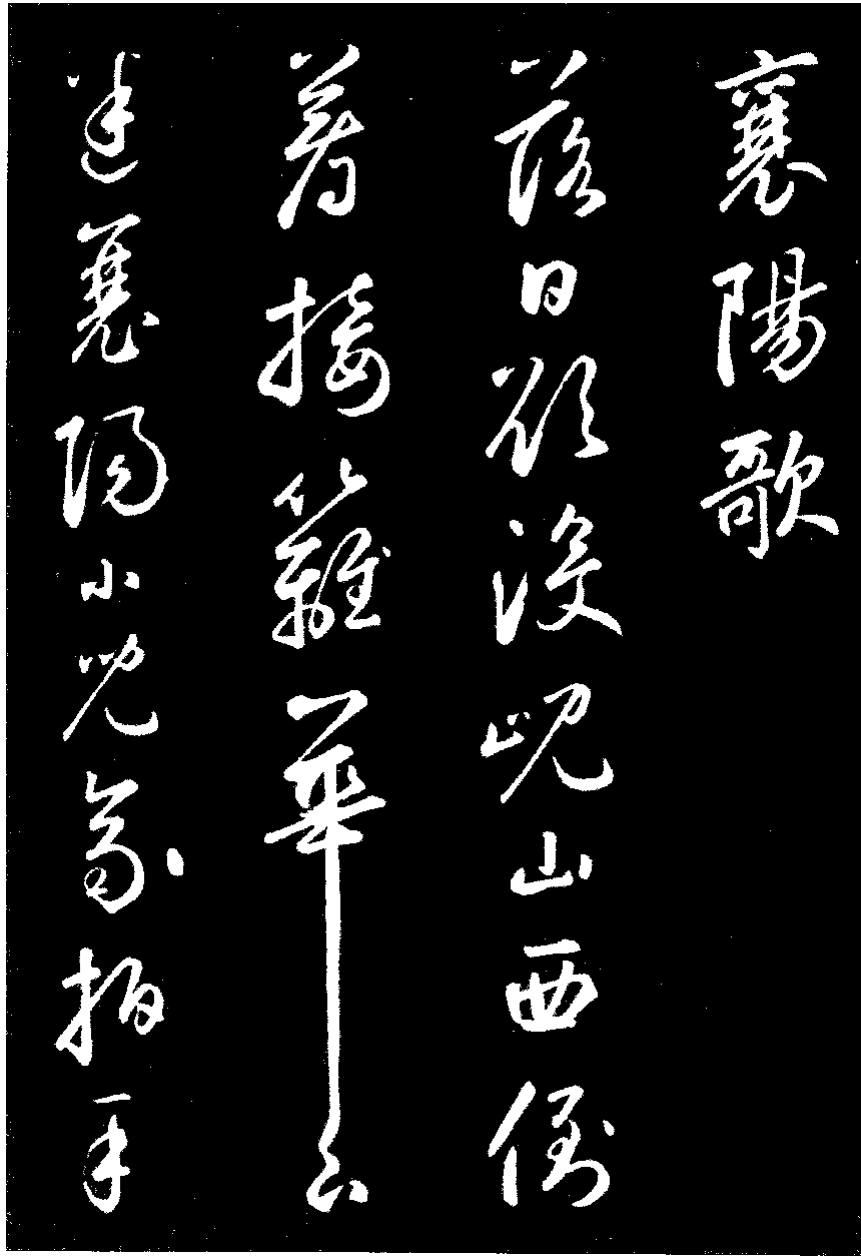 襄陽歌
落日欲没峴山西倒
著接籬華下
迷襄陽小兒齊拍手